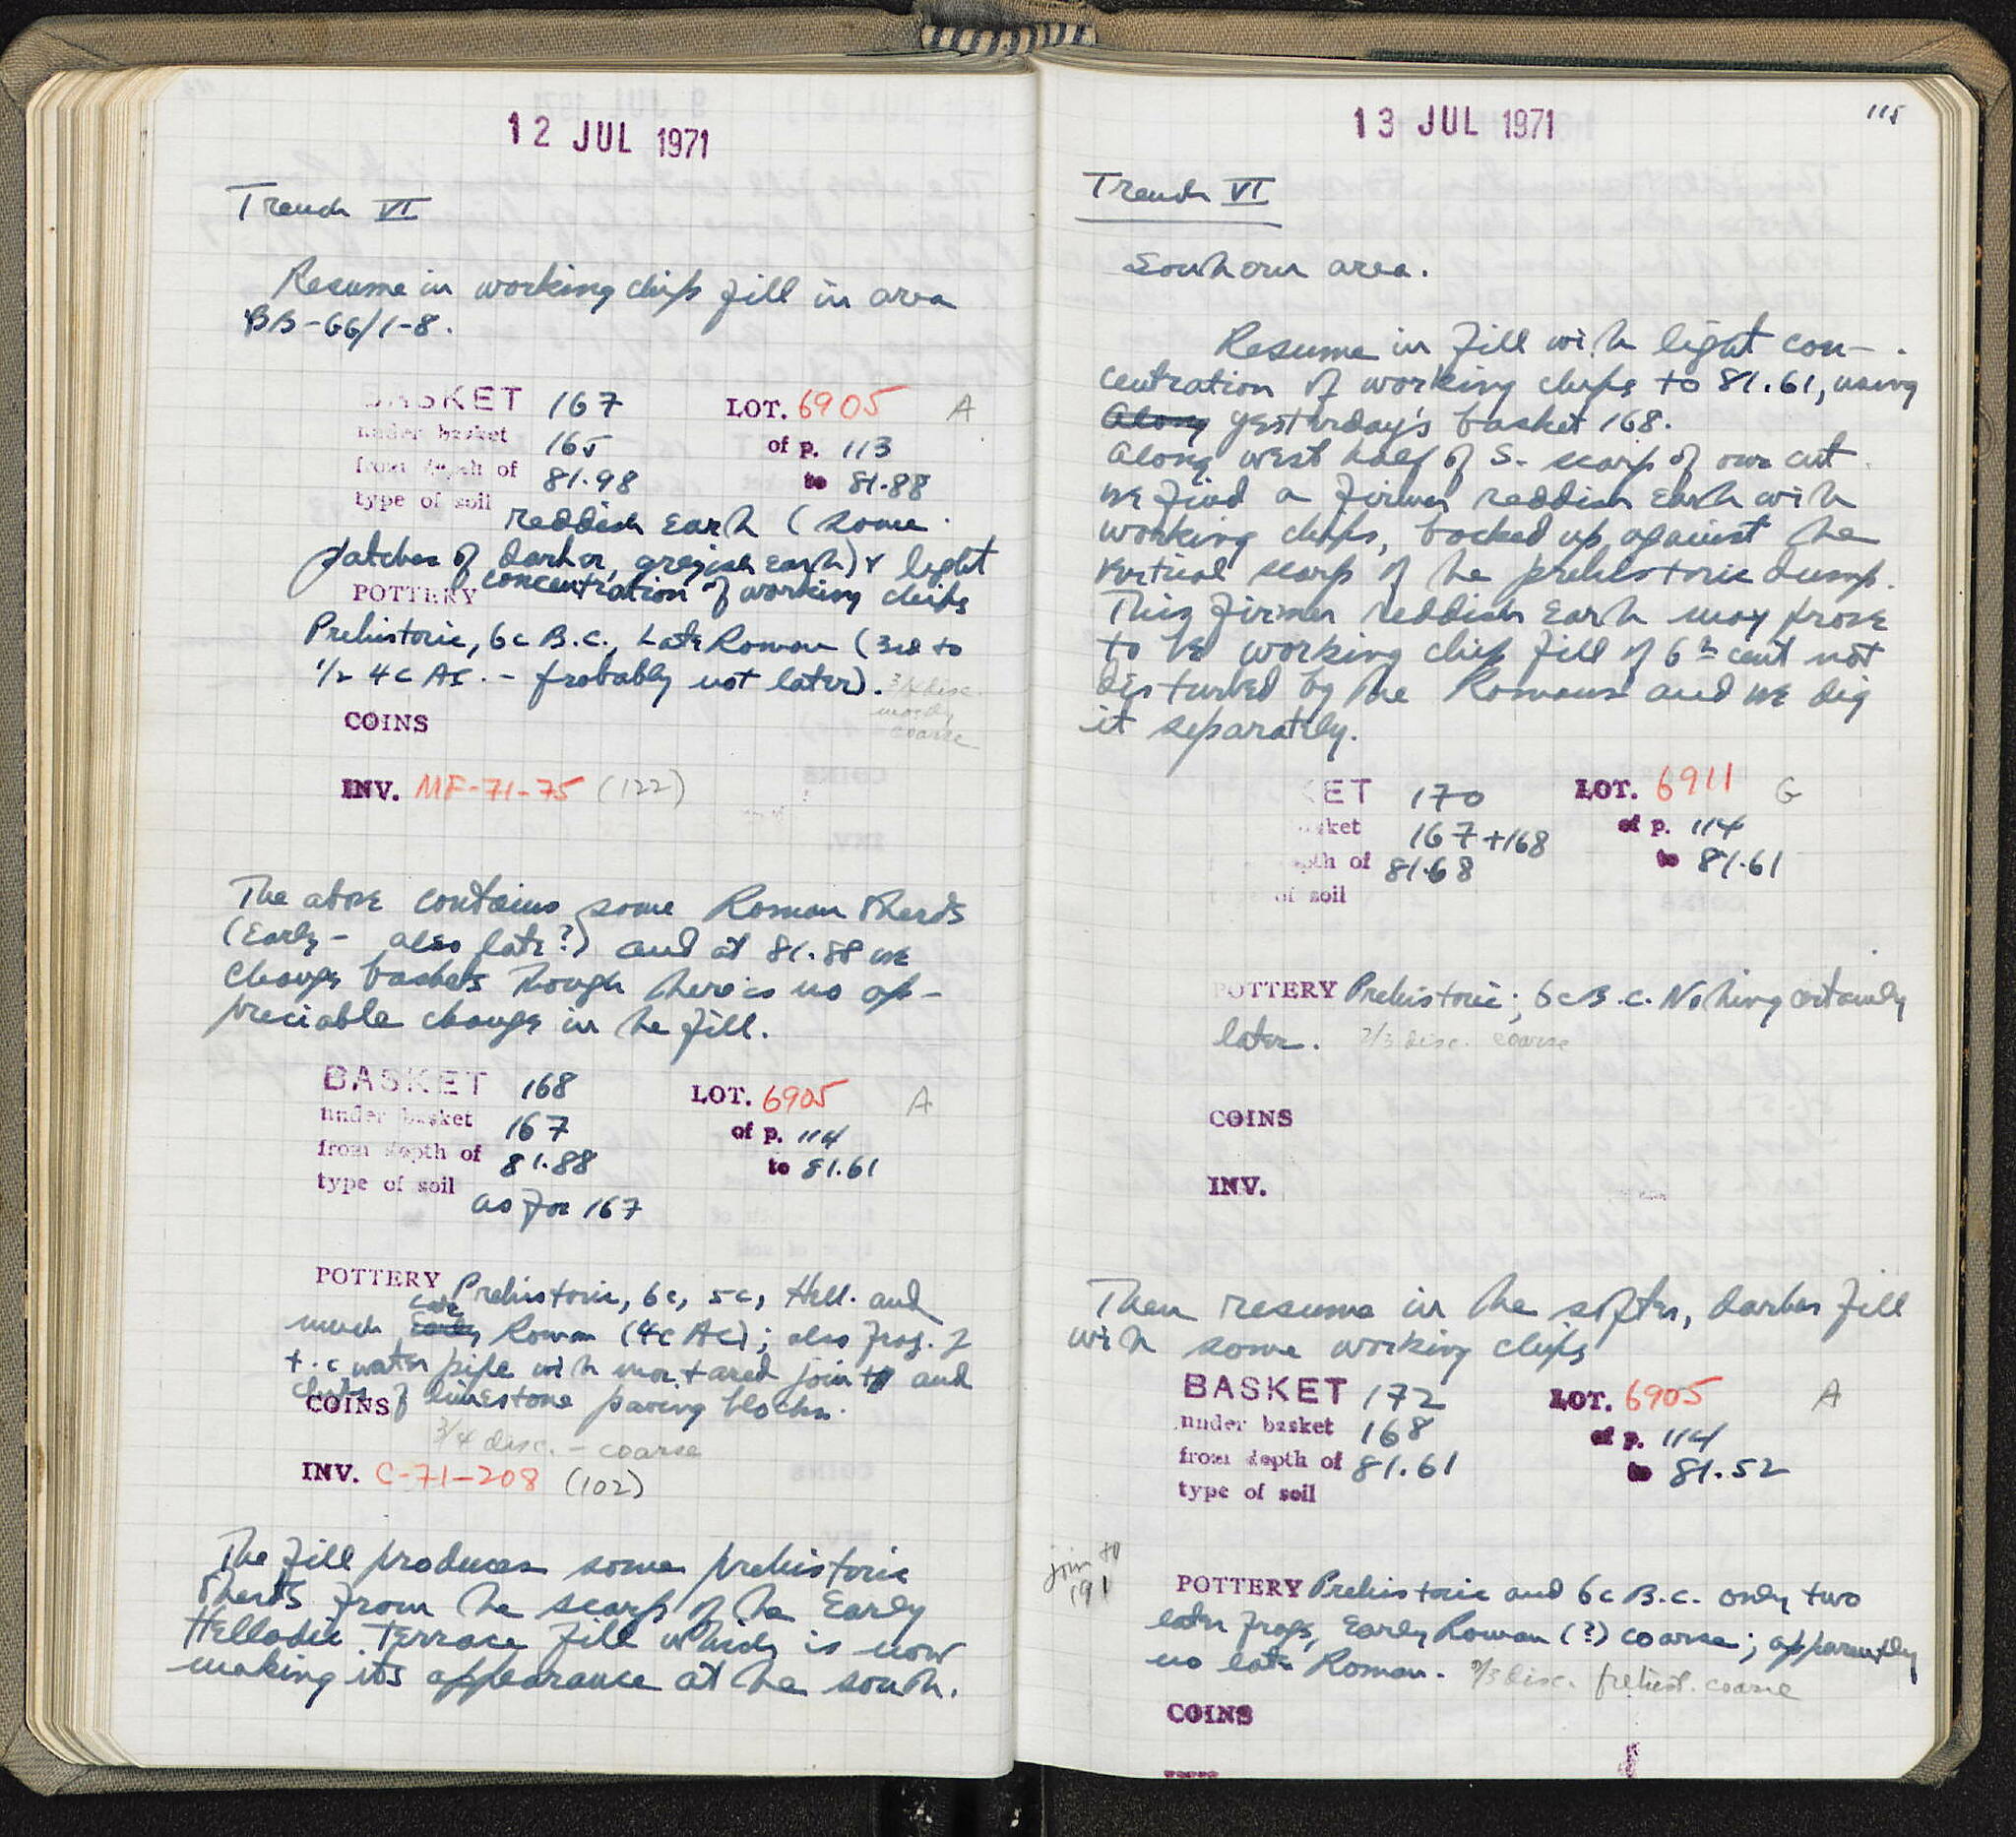 12 JUL 1971
Trench VI
Resume in working chip fill in area
BB-GG/1-8.
BASKET 167 LOT. 6905 A
under basket 165 of p. 113
from depth of 81.98 to 81.88
type of soil reddish earth (some
patches of darker, greyish earth) + light
concentration of working chips
POTTERY
Prehistoric, 6c B.C., Late Roman (3rd to
1/2 4c AC. - probably not later). 3/4 disc.
mostly
coarse
COINS
INV. MF-71-75 (122)
The above contains some Roman sherds
(Early - also late?) and at 81.88 we
change baskets though there is no ap-
preciable change in the fill.
BASKET 168 LOT. 6905 A
under basket 167 of p. 114
from depth of 81.88 to 81.61
type of soil as for 167
POTTERY Prehistoric, 6c, 5c, Hell. and
much Late Roman (4c AC); also frag. of
t.c water pipe with mortared joint and
chips of limestone paving blocks.
COINS
3/4 disc. - coarse
INV. C-71-208 (102)
The fill produces some prehistoric
sherds from the scarp of the Early
Helladic terrace fill which is now
making its appearance at the south.
115
13 JUL 1971
Trench VI
Southern area.
Resume in fill with light con-
centration of working chips to 81.61, using
Along yesterday's basket 168.
Along west half of S. scarp of our cut
we find a firmer reddish earth with
working chips, backed up against the
vertical scarp of the prehistoric dump.
This firmer reddish earth may prove
to be working chip fill of 6th cent not
disturbed by the Romans and we dig
it separately.
KET 170 LOT. 6911 G
sket 167+168 of p. 114
pth of 81.68 to 81.61
of soil
POTTERY Prehistoric; 6c B.C. Nothing certainly
later. 2/3 disc. coarse
COINS
INV.
Then resume in the softer, darker fill
with some working chips
BASKET 172 LOT. 6905 A
under basket 168 of p. 114
from depth of 81.61 to 81.52
type of soil
join to
191
POTTERY Prehistoric and 6c B.C. only two
later frags, Early Roman (?) coarse; apparently
no late Roman. 2/3 disc. prehist. coarse
COINS